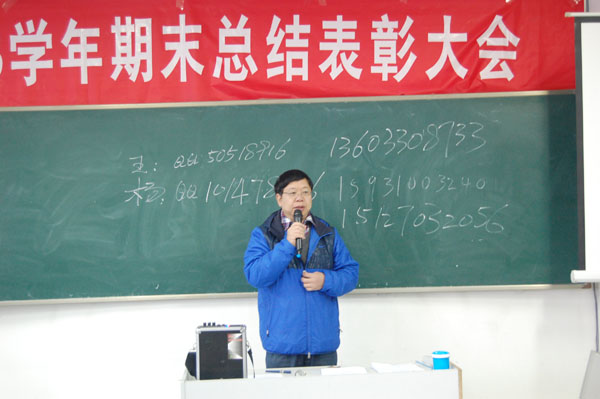 学年期末总结表彰大会
王: QQ 50518916 13603308733
杨: QQ 101478 15931003240
15127032056